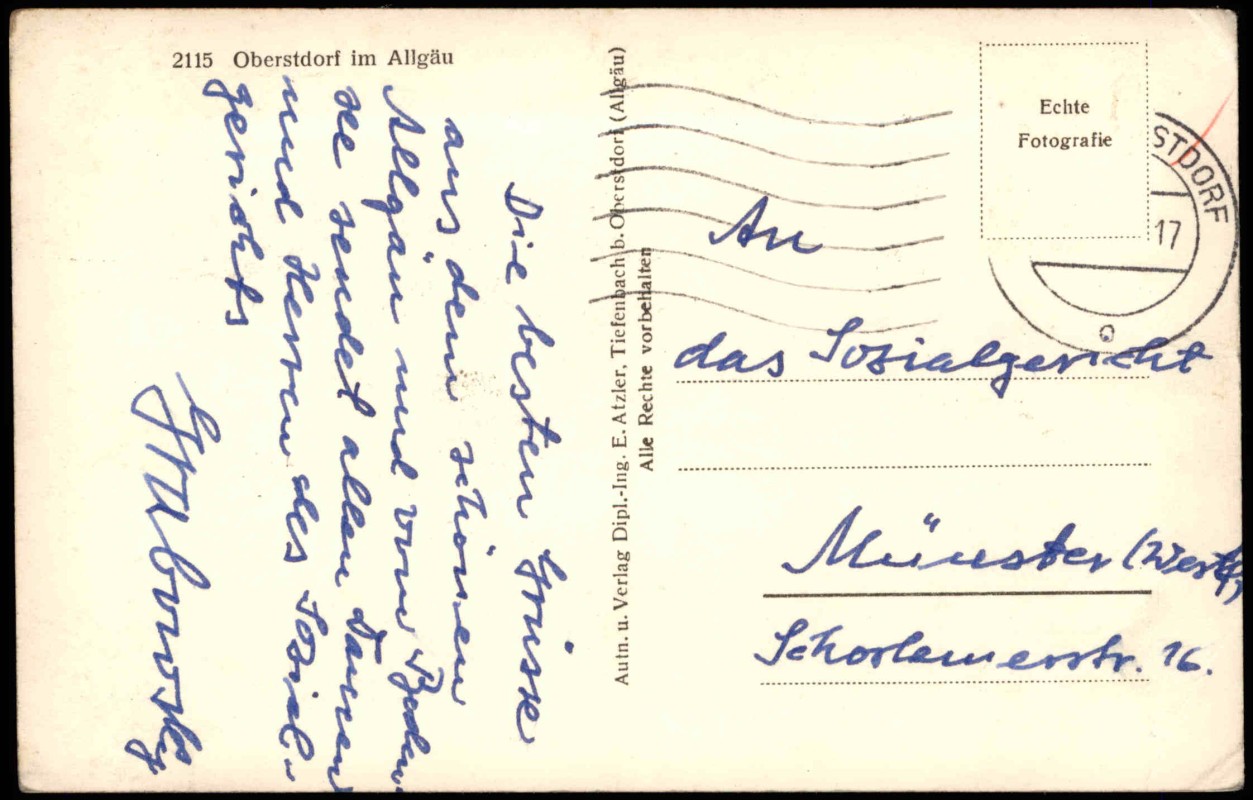 2115 Oberstdorf im Allgäu
Die besten Grüsse
aus dem schönen
Allgäu und vom Boden-
see sendet allen Damen
und Herren des Sozial-
gerichts
Autn. u. Verlag Dipl.-Ing. E. Atzler, Tiefenbach b. Oberstdorf (Allgäu)
Alle Rechte vorbehalten
Echte
Fotografie
STDORF
17
An
das Sozialgericht
Münster (Westf)
Schorlemerstr. 16.